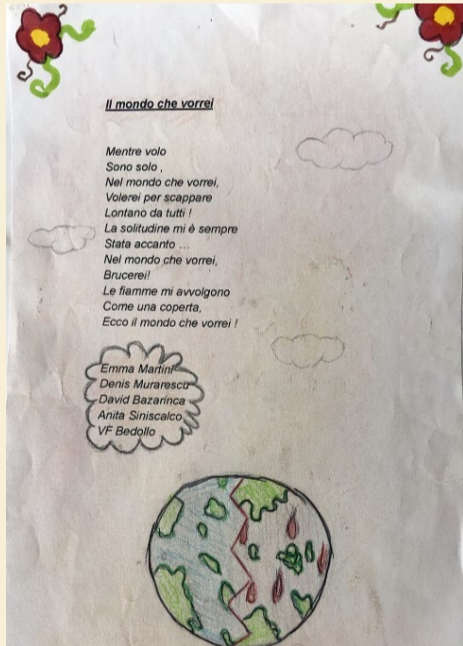 Il mondo che vorrei
Mentre volo
Sono solo ,
Nel mondo che vorrei,
Volerei per scappare
Lontano da tutti !
La solitudine mi è sempre
Stata accanto ...
Nel mondo che vorrei,
Brucerei!
Le fiamme mi avvolgono
Come una coperta,
Ecco il mondo che vorrei !
Emma Martini
Denis Murarescu
David Bazarinca
Anita Siniscalco
VF Bedollo